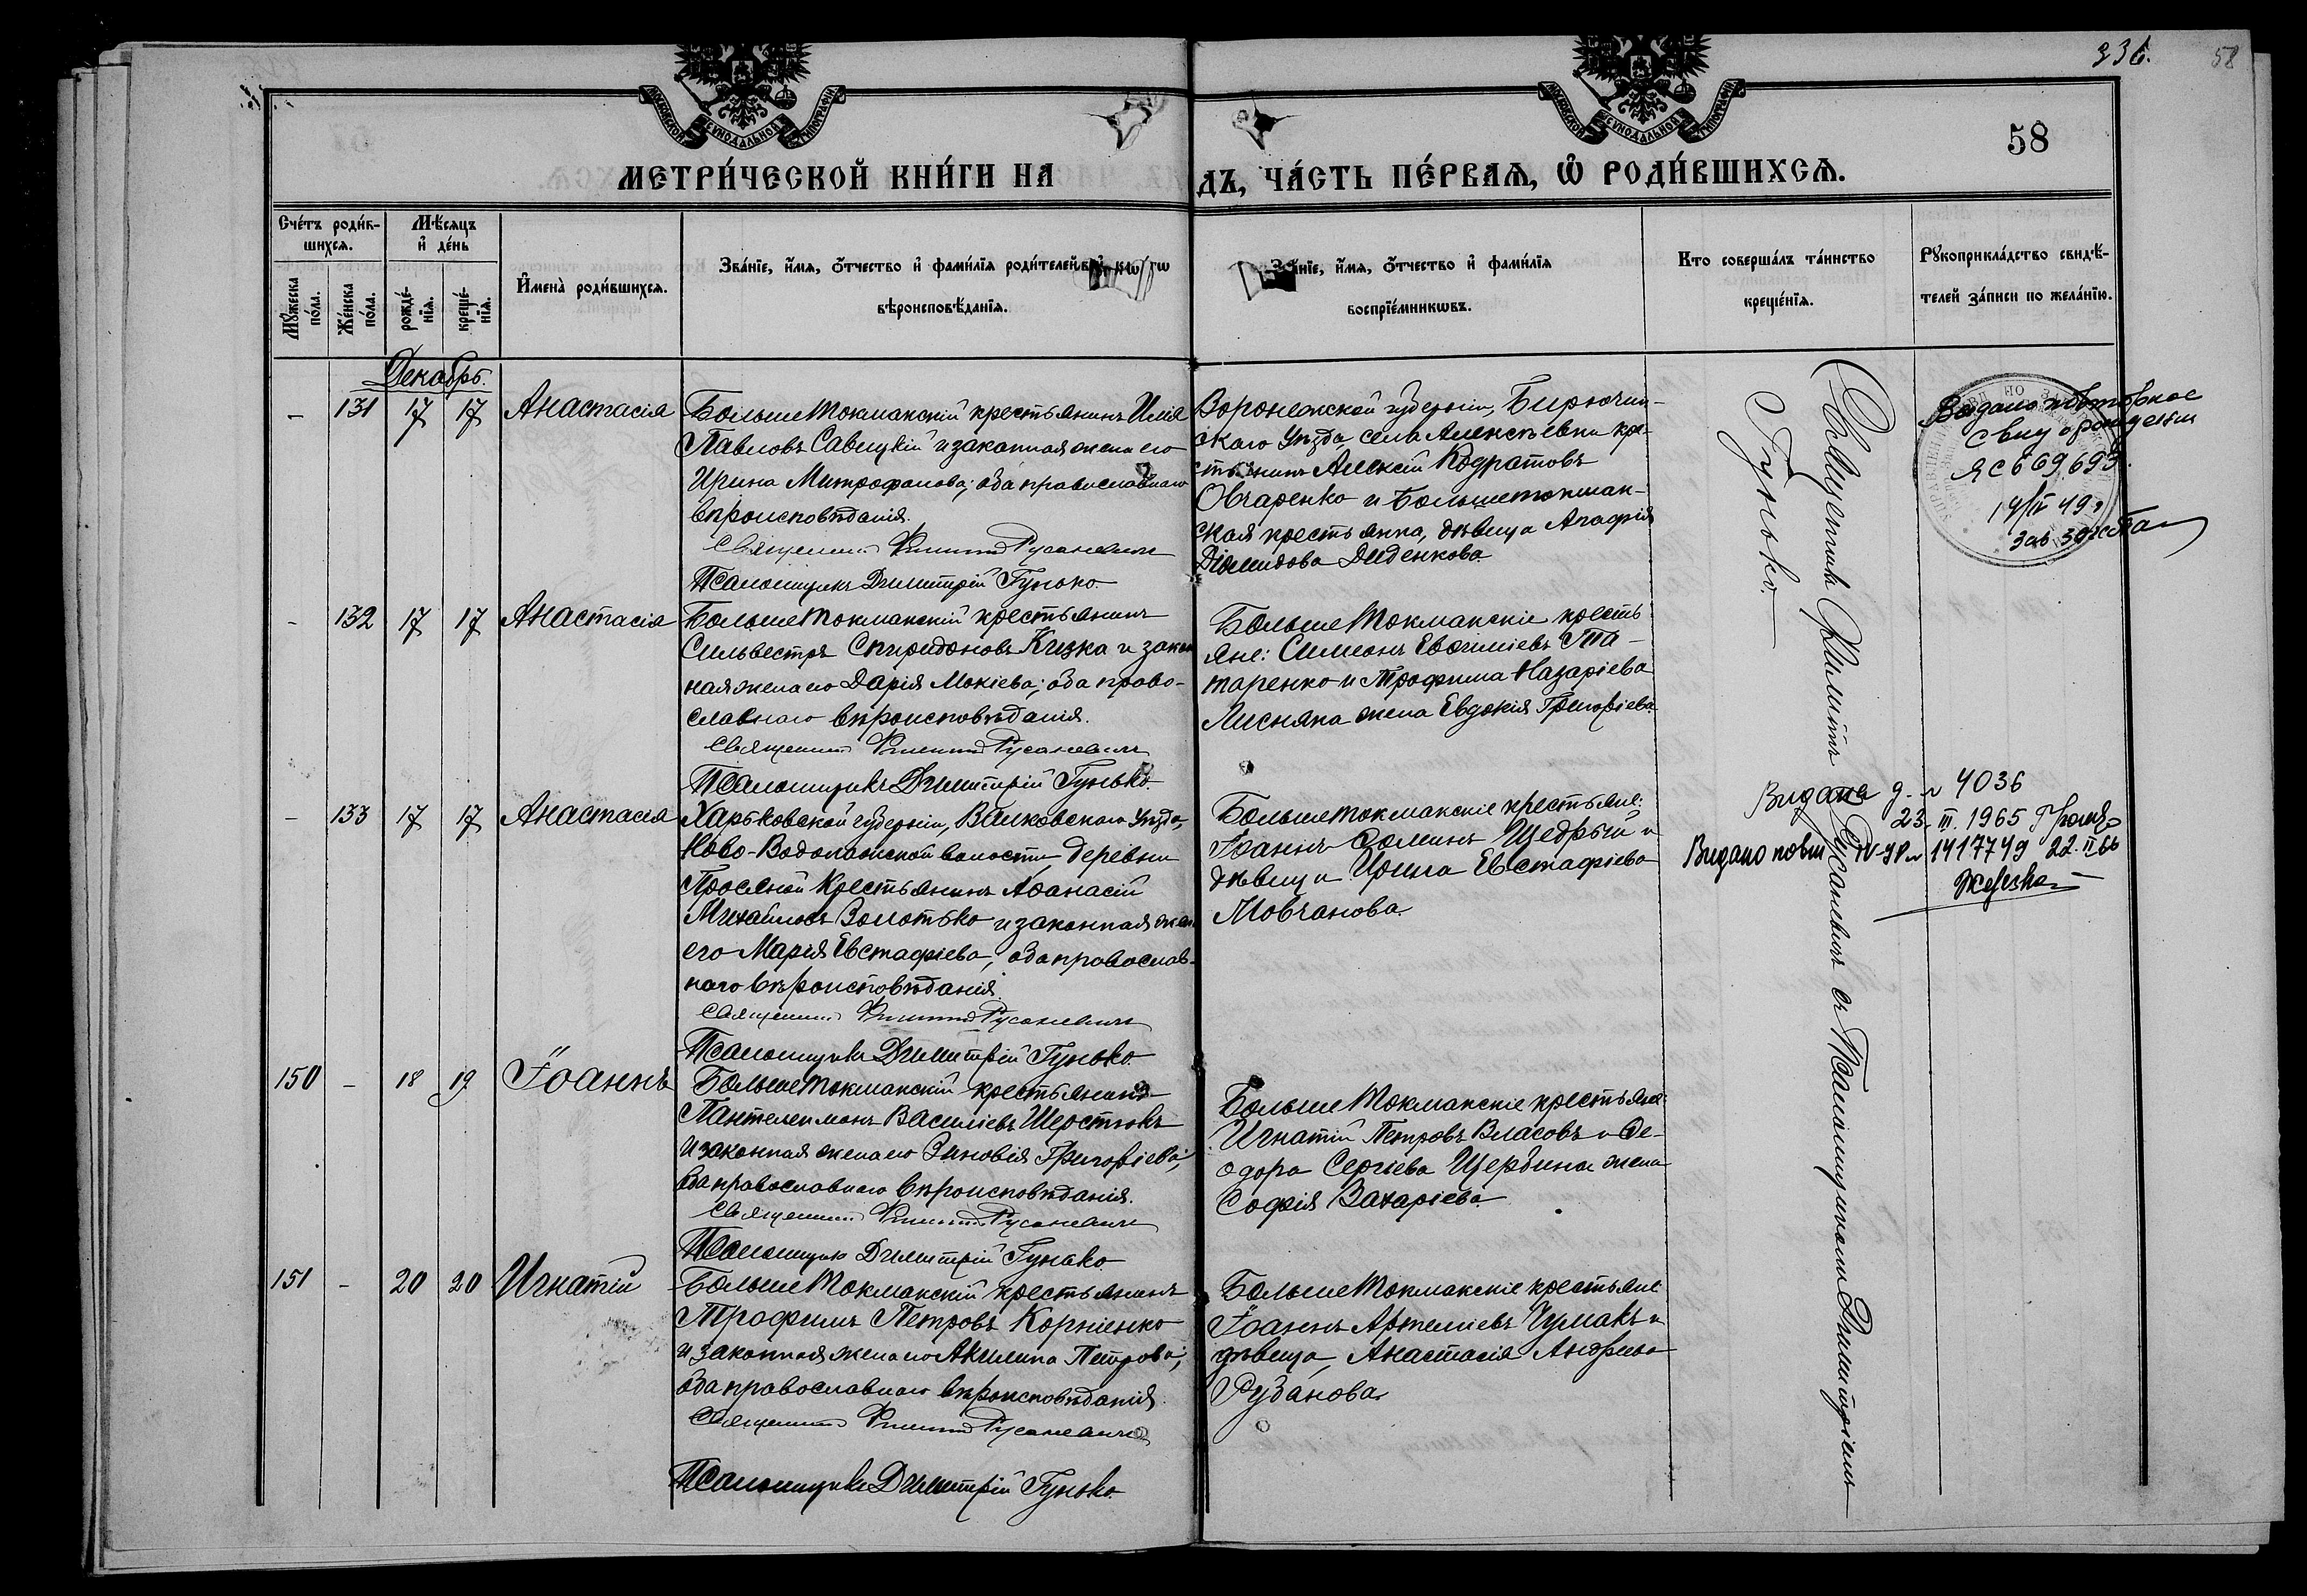 336.
58
МОСКОВСКОЙ СѴНОДАЛЬНОЙ ТИПОГРАФІИ
МОСКОВСКОЙ СѴНОДАЛЬНОЙ ТИПОГРАФІИ
58
МЕТРИ́ЧЕСКОЙ КНИ́ГИ НА
ДЪ, ЧА́СТЬ ПЕ́РВАѦ, Ѡ҆ РОДИ́ВШИХСѦ.
Сче́тъ роди́в-
шихсѧ.
Мѣ́сѧцъ
и҆ де́нь
Мꙋ́жеска
по́ла.
Же́нска
по́ла.
рожде́-
нїѧ.
креще́-
нїѧ.
И҆мена̀ роди́вшихсѧ.
Зва́нїе, и҆́мѧ, ѻ҆́тчество и҆ фами́лїѧ роди́телей
вѣроисповѣ́данїѧ.
Зва́нїе, и҆́мѧ, ѻ҆́тчество и҆ фами́лїѧ
воспрїе́мникѡвъ.
Кто соверша́лъ та́инство
креще́нїѧ.
Рꙋкоприкла́дство свидѣ́-
телей за́писи по жела́нїю.
Декабрь.
- 131 17 17 Анастасія
Большетокмакскій крестьянинъ Илія
Павловъ Савицкій и законная жена его
Ирина Митрофанова; оба православнаго
вѣроисповѣданія.
Священникъ Филиппъ Русаневичъ
Псаломщикъ Димитрій Гунько.
Воронежской губерніи, Бирючин-
скаго уѣзда, села Алексѣевки кре-
стьянинъ Алексій Кодратовъ
Овчаренко и Большетокмак-
ская крестьянка, дѣвица Агафія
Діомидова Диденкова.
Выдано повторное
св-ву о рождении
ЯС 669693.
14/IV 49 г
Зав загс
- 132 17 17 Анастасія
Большетокмакскій крестьянинъ
Сильвестръ Спиридоновъ Кизка и закон
ная жена его Дарія Мокіева; оба право-
славнаго вѣроисповѣданія.
Священникъ Филиппъ Русаневичъ
Псаломщикъ Димитрій Гунько.
Большетокмакскіе кресть
яне: Симеонъ Евѳиміевъ Тата-
ренко и Трофима Назаріева
Лисняка жена Евдокія Григоріева.
- 133 17 17 Анастасія
Харьковской губерніи, Валковскаго уѣзда,
Ново-Водолажской волости, деревни
Просяной крестьянинъ Аѳанасій
Михайловъ Золотько и законная жена
его Марія Евстафіева, оба православ-
наго вѣроисповѣданія.
Священникъ Филиппъ Русаневичъ
Псаломщикъ Димитрій Гунько.
Большетокмакскіе крестьяне:
Іоаннъ Ѳоминъ Щедрый и
дѣвица Ирина Евстафіева
Мовчанова.
Видана д. № 4036
23. III. 1965
Видано повт IV-ЖР № 1417749 22.II 66
150 - 18 19 Іоаннъ
Большетокмакскій крестьянинъ
Пантелеимонъ Василіевъ Шерстюкъ
и законная жена его Зиновія Григоріева;
оба православнаго вѣроисповѣданія.
Священникъ Филиппъ Русаневичъ
Псаломщикъ Димитрій Гунько.
Большетокмакскіе крестьяне:
Игнатій Петровъ Власовъ и Ѳе-
одора Сергіева Щербины жена
Софія Захаріева.
151 - 20 20 Игнатій
Большетокмакскій крестьянинъ
Трофимъ Петровъ Корніенко
и законная жена его Акилина Петрова;
оба православнаго вѣроисповѣданія.
Священникъ Филиппъ Русаневичъ
Псаломщикъ Димитрій Гунько.
Большетокмакскіе крестьяне
Іоаннъ Артеміевъ Чумакъ и
дѣвица, Анастасія Андреева
Рубанова.
Священникъ Филиппъ Русаневичъ съ Псаломщикомъ Димитріемъ
Гунько.